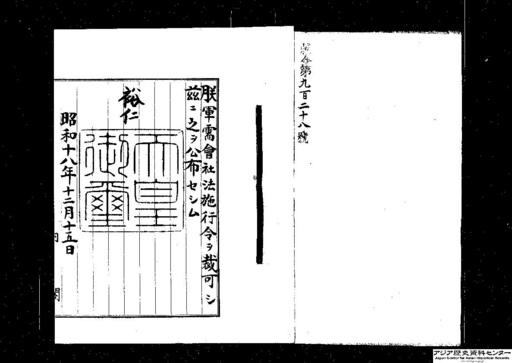 勅令第九百二十八號
朕軍需會社法施行令ヲ裁可シ
茲ニ之ヲ公布セシム
裕仁
天皇
御璽
昭和十八年十二月十五日
内閣
アジア歴史資料センター
Japan Center for Asian Historical Records